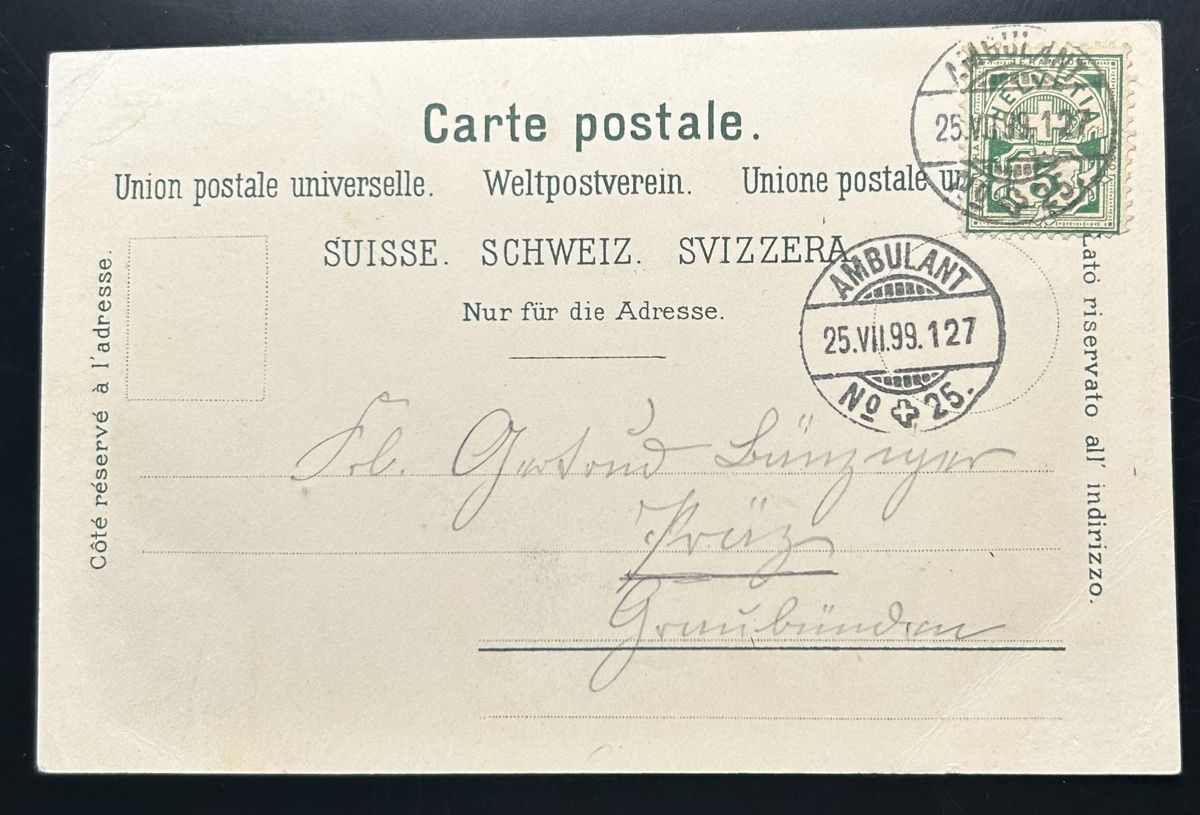 Carte postale.
Union postale universelle. Weltpostverein. Unione postale un
SUISSE. SCHWEIZ. SVIZZERA
Nur für die Adresse.
Côté réservé à l'adresse.
Lato riservato all' indirizzo.
AMBULANT
25.VII.99.127
No 25.
HELVETIA
5
AMBULANT
25.VII.99.127
No 25.
Frl. Gertrud Bänziger
Präz
Graubünden